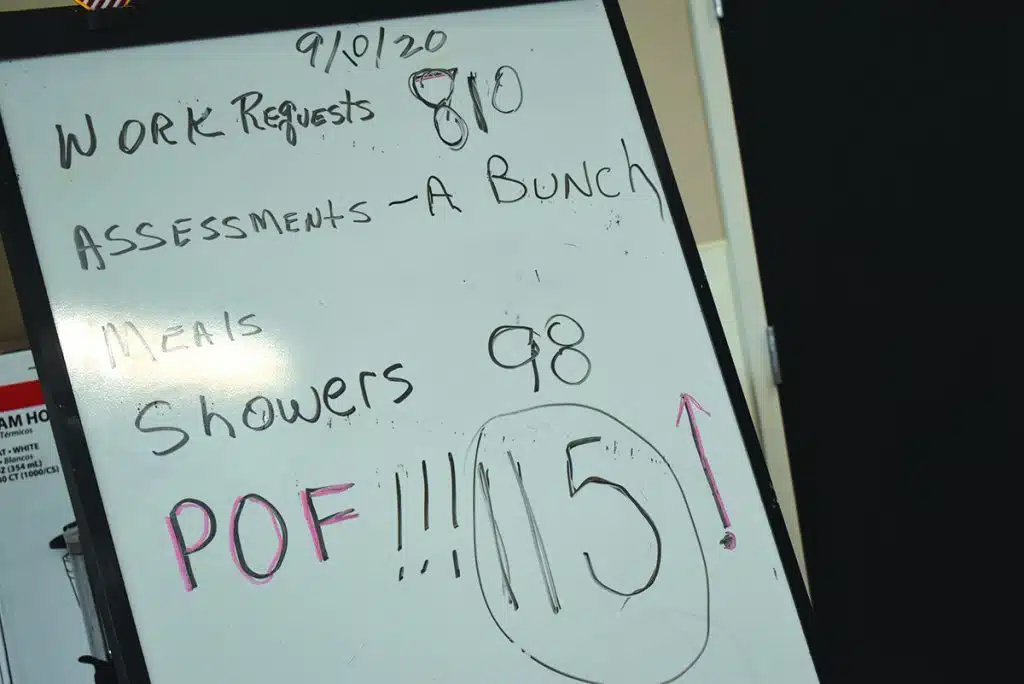 9/10/20
WORK Requests 810
ASSESSMENTS - A BUNCh
MEAlS
Showers 98
POF !!! 115
AM HO
Térmicos
AT • WHITE
Blancos
Z (354 mL)
0 CT (1000/CS)